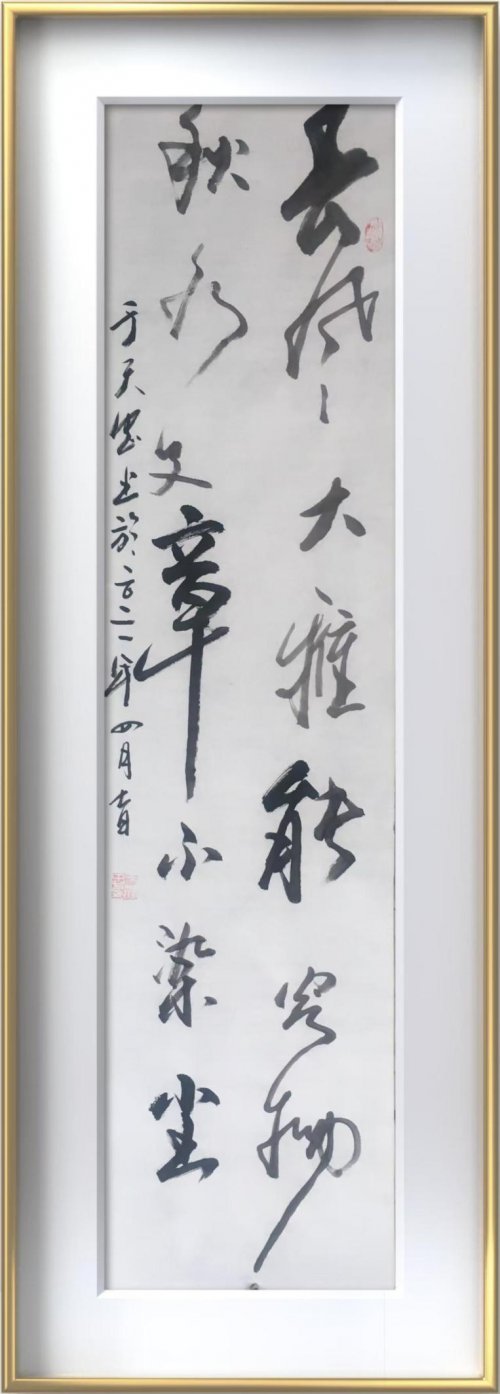 春风大雅能容物
秋水文章不染尘
于天书於二〇二一年四月